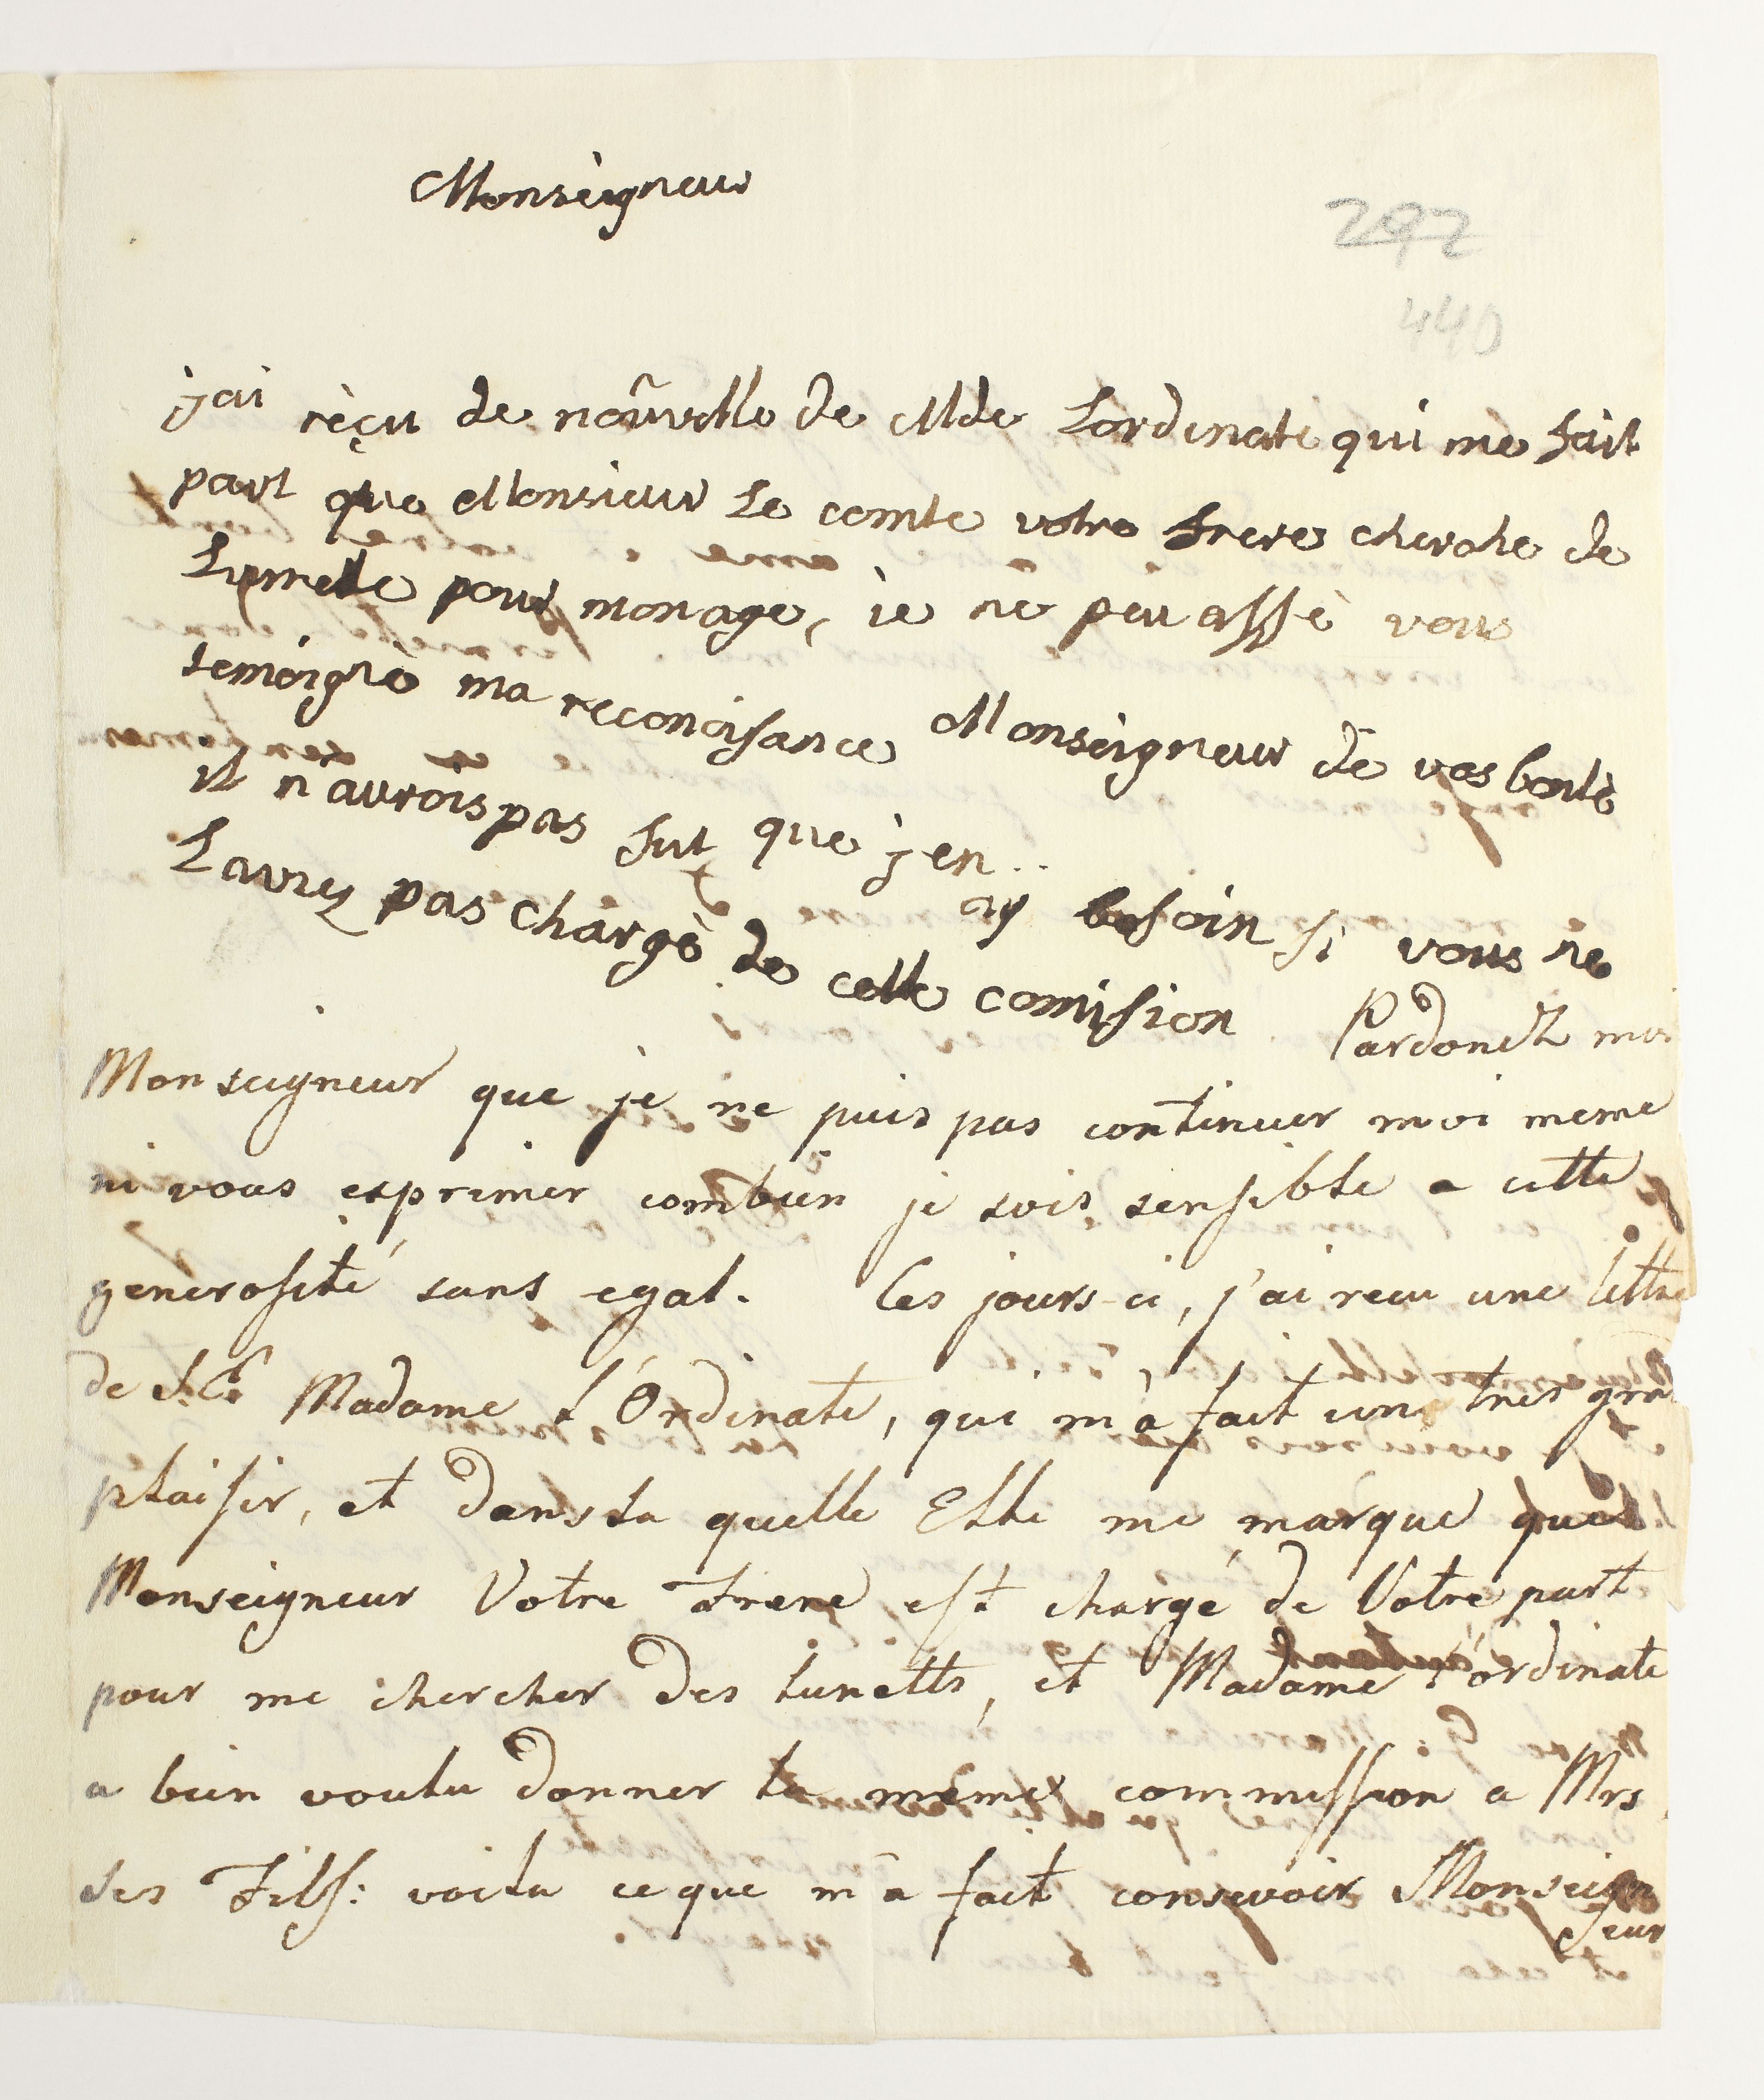 Monseigneur
292
440
j'ai rèçu de noûvelle de Mde Lordinate qui me fait
part que Monsieur Le comte votre frere cherche de
Lunette pour mon age, ie ne peu assé vous
temoignè ma reconoisance Monseigneur de vos bontè
il n'aurois pas sut que j'en ..
ay besoin si vous ne
Laviez pas chargè de cette comision Pardonez moi
Monseigneur que je ne puis pas continuer moi meme
ni vous exprimer combien je suis sensible a cette
generosité sans egal. Ces jours-ci, j'ai recu une lettre
de S.E. Madame L'Ordinate, qui m'a fait un tres gra
plaisir, et dans la quelle Elle me marque que
Monseigneur Votre Frere est chargé de Votre part
pour me chercher des lunetts, et Madame l'ordinate
a bien voulu donner la meme commission a Mrs
ses Fils: voila ce que m'a fait consevoir Monseign
eur